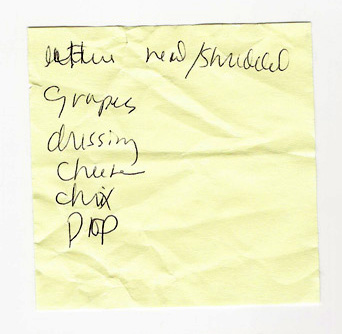 lettuce head/shredded
grapes
dressing
cheese
chix
pop